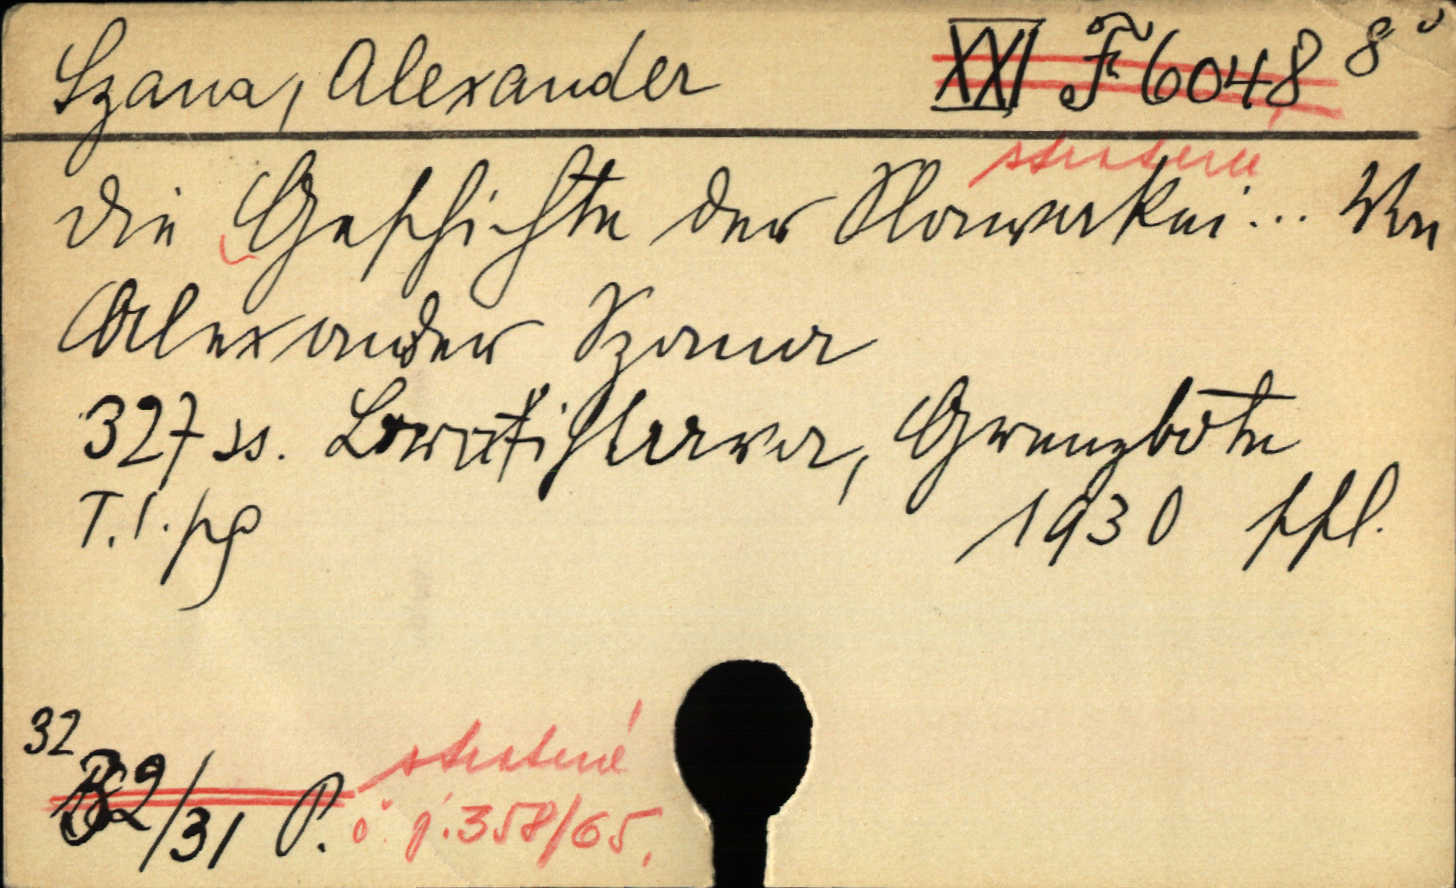 Szana, Alexander XXI F 6048 8°
stratené
Die Geschichte der Slowakei... Von
Alexander Szana
327 ss. Bratislava, Grenzbote
T.I. pg 1930 ppl.
32
B2/31 P. stratené
č. j. 358/65.